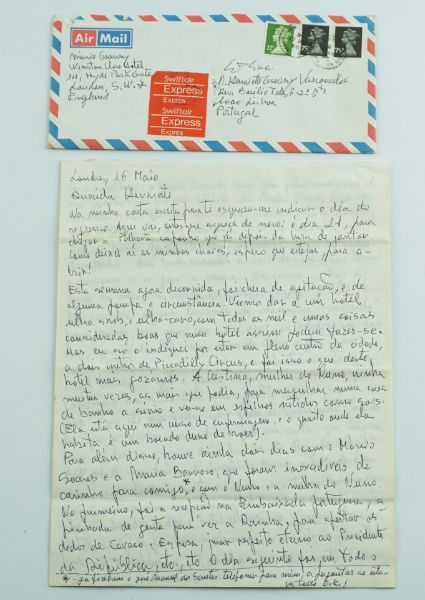 Air Mail
Mário Cesariny
Winston Churchill Hotel
Hyde Park Gate
London, S.W.7
England
Swiftair
Express
Exprès
Swiftair
Express
Exprès
22p
75p
75p
D. Henriette Cesariny Vasconcelos
Rua Basílio Teles, 6-2º Dtº
1000 Lisboa
Portugal
Londres, 16 Maio
Querida Henriette
Na minha carta, escrita para ti esqueceu-me indicar o dia do
regresso. Aqui vai, antes que esqueça de novo: é dia 21, para
chegar a Palhavã à hora de jantar
Como deixei aí as minhas chaves, espero que estejas para a-
brir!
Esta semana agora decorrida, foi cheia de agitação, e de
alguma pompa e circunstância. Viemos dar a um hotel
ultra-snob, ultra-caro, com todas as mil e umas coisas
consideradas boas que num hotel assim podem fazer-se.
Mas eu cá o indiquei por estar em pleno centro da cidade,
a dois minutos de Piccadilly Circus, e foi isso o que deste
hotel mais gozamos. A Cristina, mulher do Nuno, vinha
muitas vezes, as mais que podia, para mergulhar numa casa
de banho a sério e ver-se em espelhos nítidos como sóis.
(Ela está aqui num curso de enfermagem, e o quarto onde
habita é um bocado).
Para além disso, houve ainda dois dias com o Mário
Soares e a Maria Barroso, que foram inexcedíveis de
carinho para comigo,* e com o Nuno e a mulher do Nuno.
No primeiro, foi a recepção na Embaixada portuguesa,
pinhada de gente para ver a Rainha, para apertar os
dedos de Cavaco e Esposa, mais perfeito eterno ao Presidente
da República, etc. etc. O dia seguinte foi em todo o
* já tinham o que Manuel dos Santos telefonou para mim, a perguntar se esta-
va tudo O.K.!